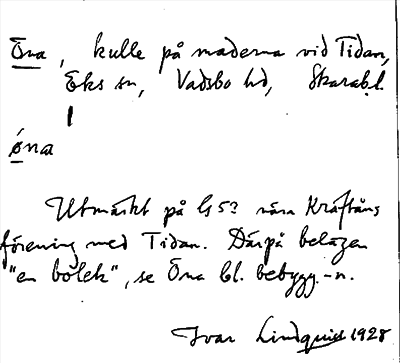 Öna, kulle på maderna vid Tidan,
Eks sn, Vadsbo hd, Skarab.l.
øna
Utmärkt på G5? nära Kräftåns
förening med Tidan. Därpå belägen
"en bölek", se Öna bl. bebygg.-n.
Ivar Lindquist 1928